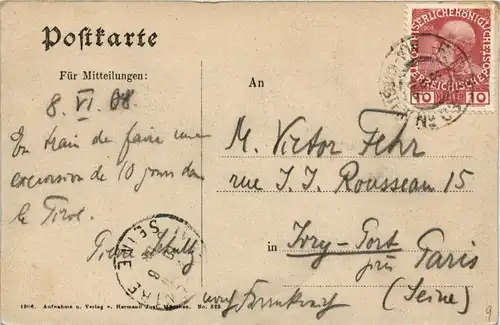 Postkarte
Für Mitteilungen:
An
8. VI. 08.
En train de faire une
excursion de 10 jours dans
le Tirol.
Pierre
M. Victor Fehr
rue J. J. Rousseau 15
in Ivry-Port
près Paris
(Seine)
noch Frankreich
KAISERLICHEKÖNIGLICHE
ÖSTERREICHISCHE POST
10 HELLER 10
SEINE
1906. Aufnahme u. Verlag v. Hermann München. No. 523.
9